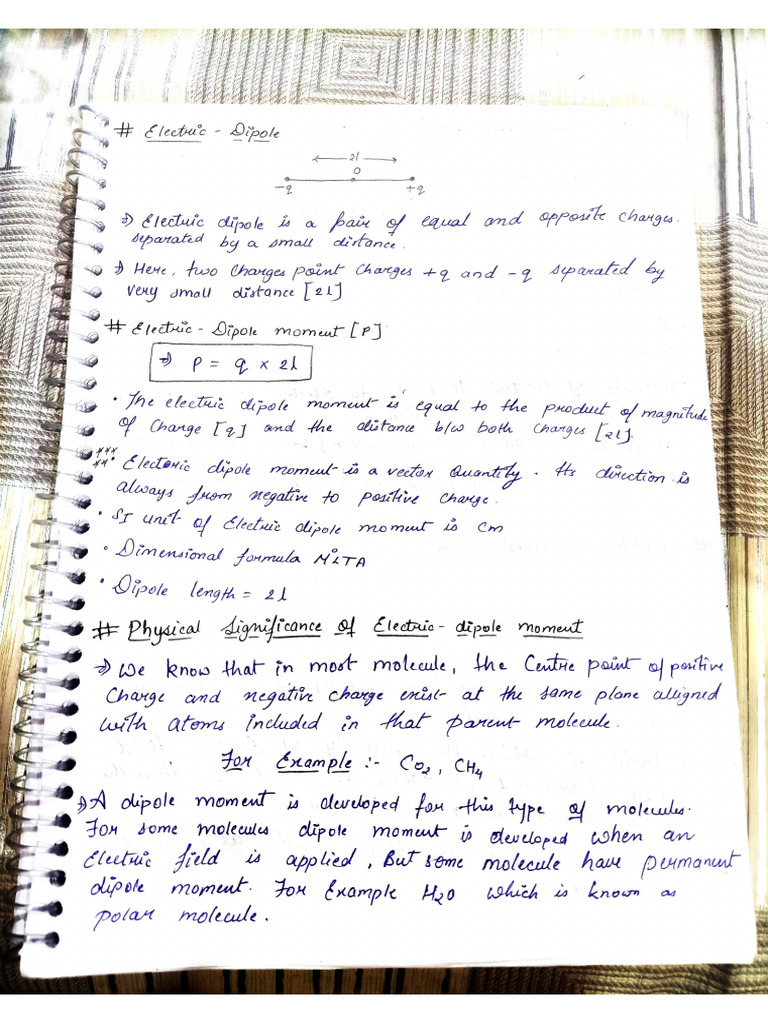 # Electric - Dipole
2l
O
-q +q
⇒ Electric dipole is a pair of equal and opposite charges.
separated by a small distance.
⇒ Here, two charges point charges +q and -q separated by
very small distance [2l]
# Electric - Dipole moment [P]
⇒ P = q × 2l
• The electric dipole moment is equal to the product of magnitude
of charge [q] and the distance b/w both charges [2l].
• Electoric dipole moment is a vector quantity. Its direction is
always from negative to positive charge.
• SI unit of Electric dipole moment is cm
• Dimensional formula M°LTA
• Dipole length = 2l
# Physical Significance of Electric - dipole moment
⇒ We know that in most molecule, the Centre point of positive
Charge and negative charge exist at the same plane alligned
with atoms included in that parent molecule.
For Example :- CO2, CH4
⇒ A dipole moment is developed for this type of molecules.
For some molecules dipole moment is developed when an
Electric field is applied, But some molecule have permanent
dipole moment. For Example H2O which is known as
polar molecule.